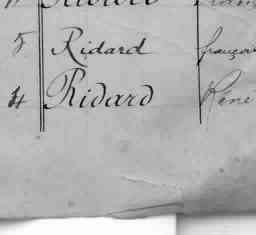 5 Ridard françois
4 Ridard Réné